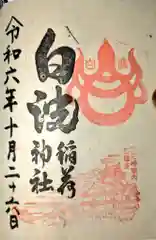 白波稲荷神社
令和六年十月二十六日